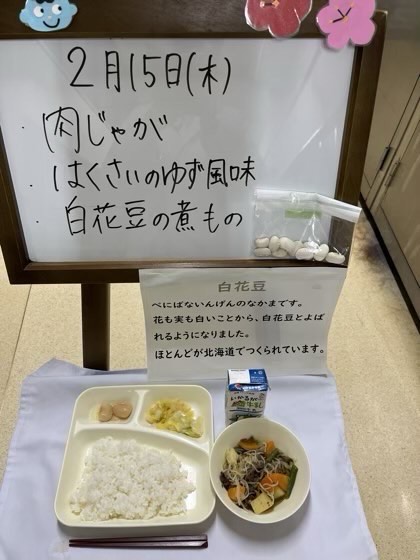 2月15日(木)
・肉じゃが
・はくさいのゆず風味
・白花豆の煮もの
白花豆
べにばないんげんのなかまです。
花も実も白いことから、白花豆とよば
れるようになりました。
ほとんどが北海道でつくられています。
いかるが
牛乳